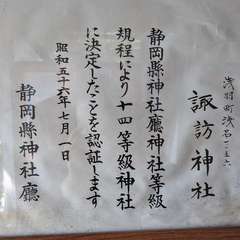 浅羽町浅名一三一六
諏訪神社
静岡縣神社廳神社等級
規程により十四等級神社
に決定したことを認証します
昭和五十六年七月一日
静岡縣神社廳